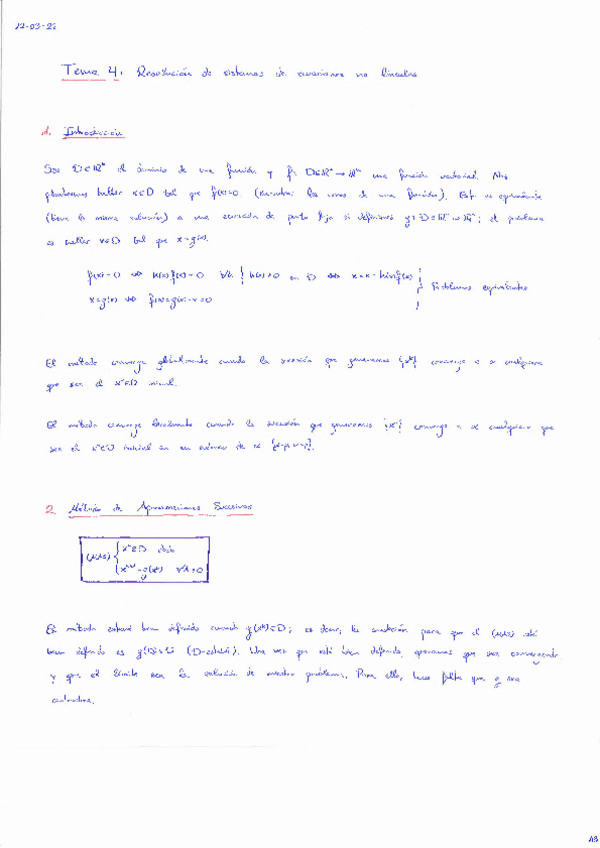 12-03-22
Tema 4. Resolución de sistemas de ecuaciones no lineales
1. Introducción
Sea D⊂ℝⁿ el dominio de una función y f: D⊂ℝⁿ → ℝⁿ una función vectorial. Nos
planteamos hallar x∈D tal que f(x)=0 (encontrar los ceros de una función). Esto es equivalente
(tiene la misma solución) a una ecuación de punto fijo si definimos g: D⊂ℝⁿ → ℝⁿ; el problema
es hallar x∈D tal que x=g(x).
f(x)=0 ⇔ h(x)f(x)=0 ∀h / h(x)≠0 en D ⇔ x=x-h(x)f(x)
x=g(x) ⇔ f(x)=g(x)-x=0
Problemas equivalentes
El método converge globalmente cuando la sucesión que generamos {xᵏ} converge a α cualquiera
que sea el x⁰∈D inicial.
El método converge localmente cuando la sucesión que generamos {xᵏ} converge a α cualquiera que
sea el x⁰∈D inicial en un entorno de α
2. Método de Aproximaciones Sucesivas
(MAS) { x⁰∈D dado
xᵏ⁺¹=g(xᵏ) ∀k≥0
El método estará bien definido cuando g(xᵏ)∈D; es decir, la condición para que el (MAS) esté
bien definido es g(D)⊂D (D-estable). Una vez que esté bien definido, queremos que sea convergente
y que el límite sea la solución de nuestro problema. Para ello, hace falta que g sea
contractiva.
43